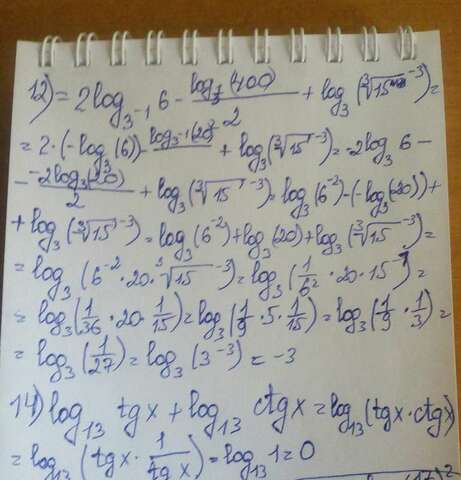 12) = 2log_{3^{-1}} 6 - \frac{log_{3^{-1}}(400)}{2} + log_3(\sqrt[3]{15}^{-3}) =
= 2·(-log_3(6)) - \frac{log_{3^{-1}}(20)^2}{2} + log_3(\sqrt[3]{15}^{-3}) = -2log_3 6 -
- \frac{-2log_3(20)}{2} + log_3(\sqrt[3]{15}^{-3}) = log_3(6^{-2}) - (-log_3(20)) +
+ log_3(\sqrt[3]{15}^{-3}) = log_3(6^{-2}) + log_3(20) + log_3(\sqrt[3]{15}^{-3}) =
= log_3(6^{-2}·20·\sqrt[3]{15}^{-3}) = log_3(\frac{1}{6^2}·20·15^{-1}) =
= log_3(\frac{1}{36}·20·\frac{1}{15}) = log_3(\frac{1}{9}·5·\frac{1}{15}) = log_3(\frac{1}{9}·\frac{1}{3}) =
= log_3(\frac{1}{27}) = log_3(3^{-3}) = -3
14) log_{13} tgx + log_{13} ctgx = log_{13}(tgx·ctgx) =
= log_{13}(tgx·\frac{1}{tgx}) = log_{13} 1 = 0